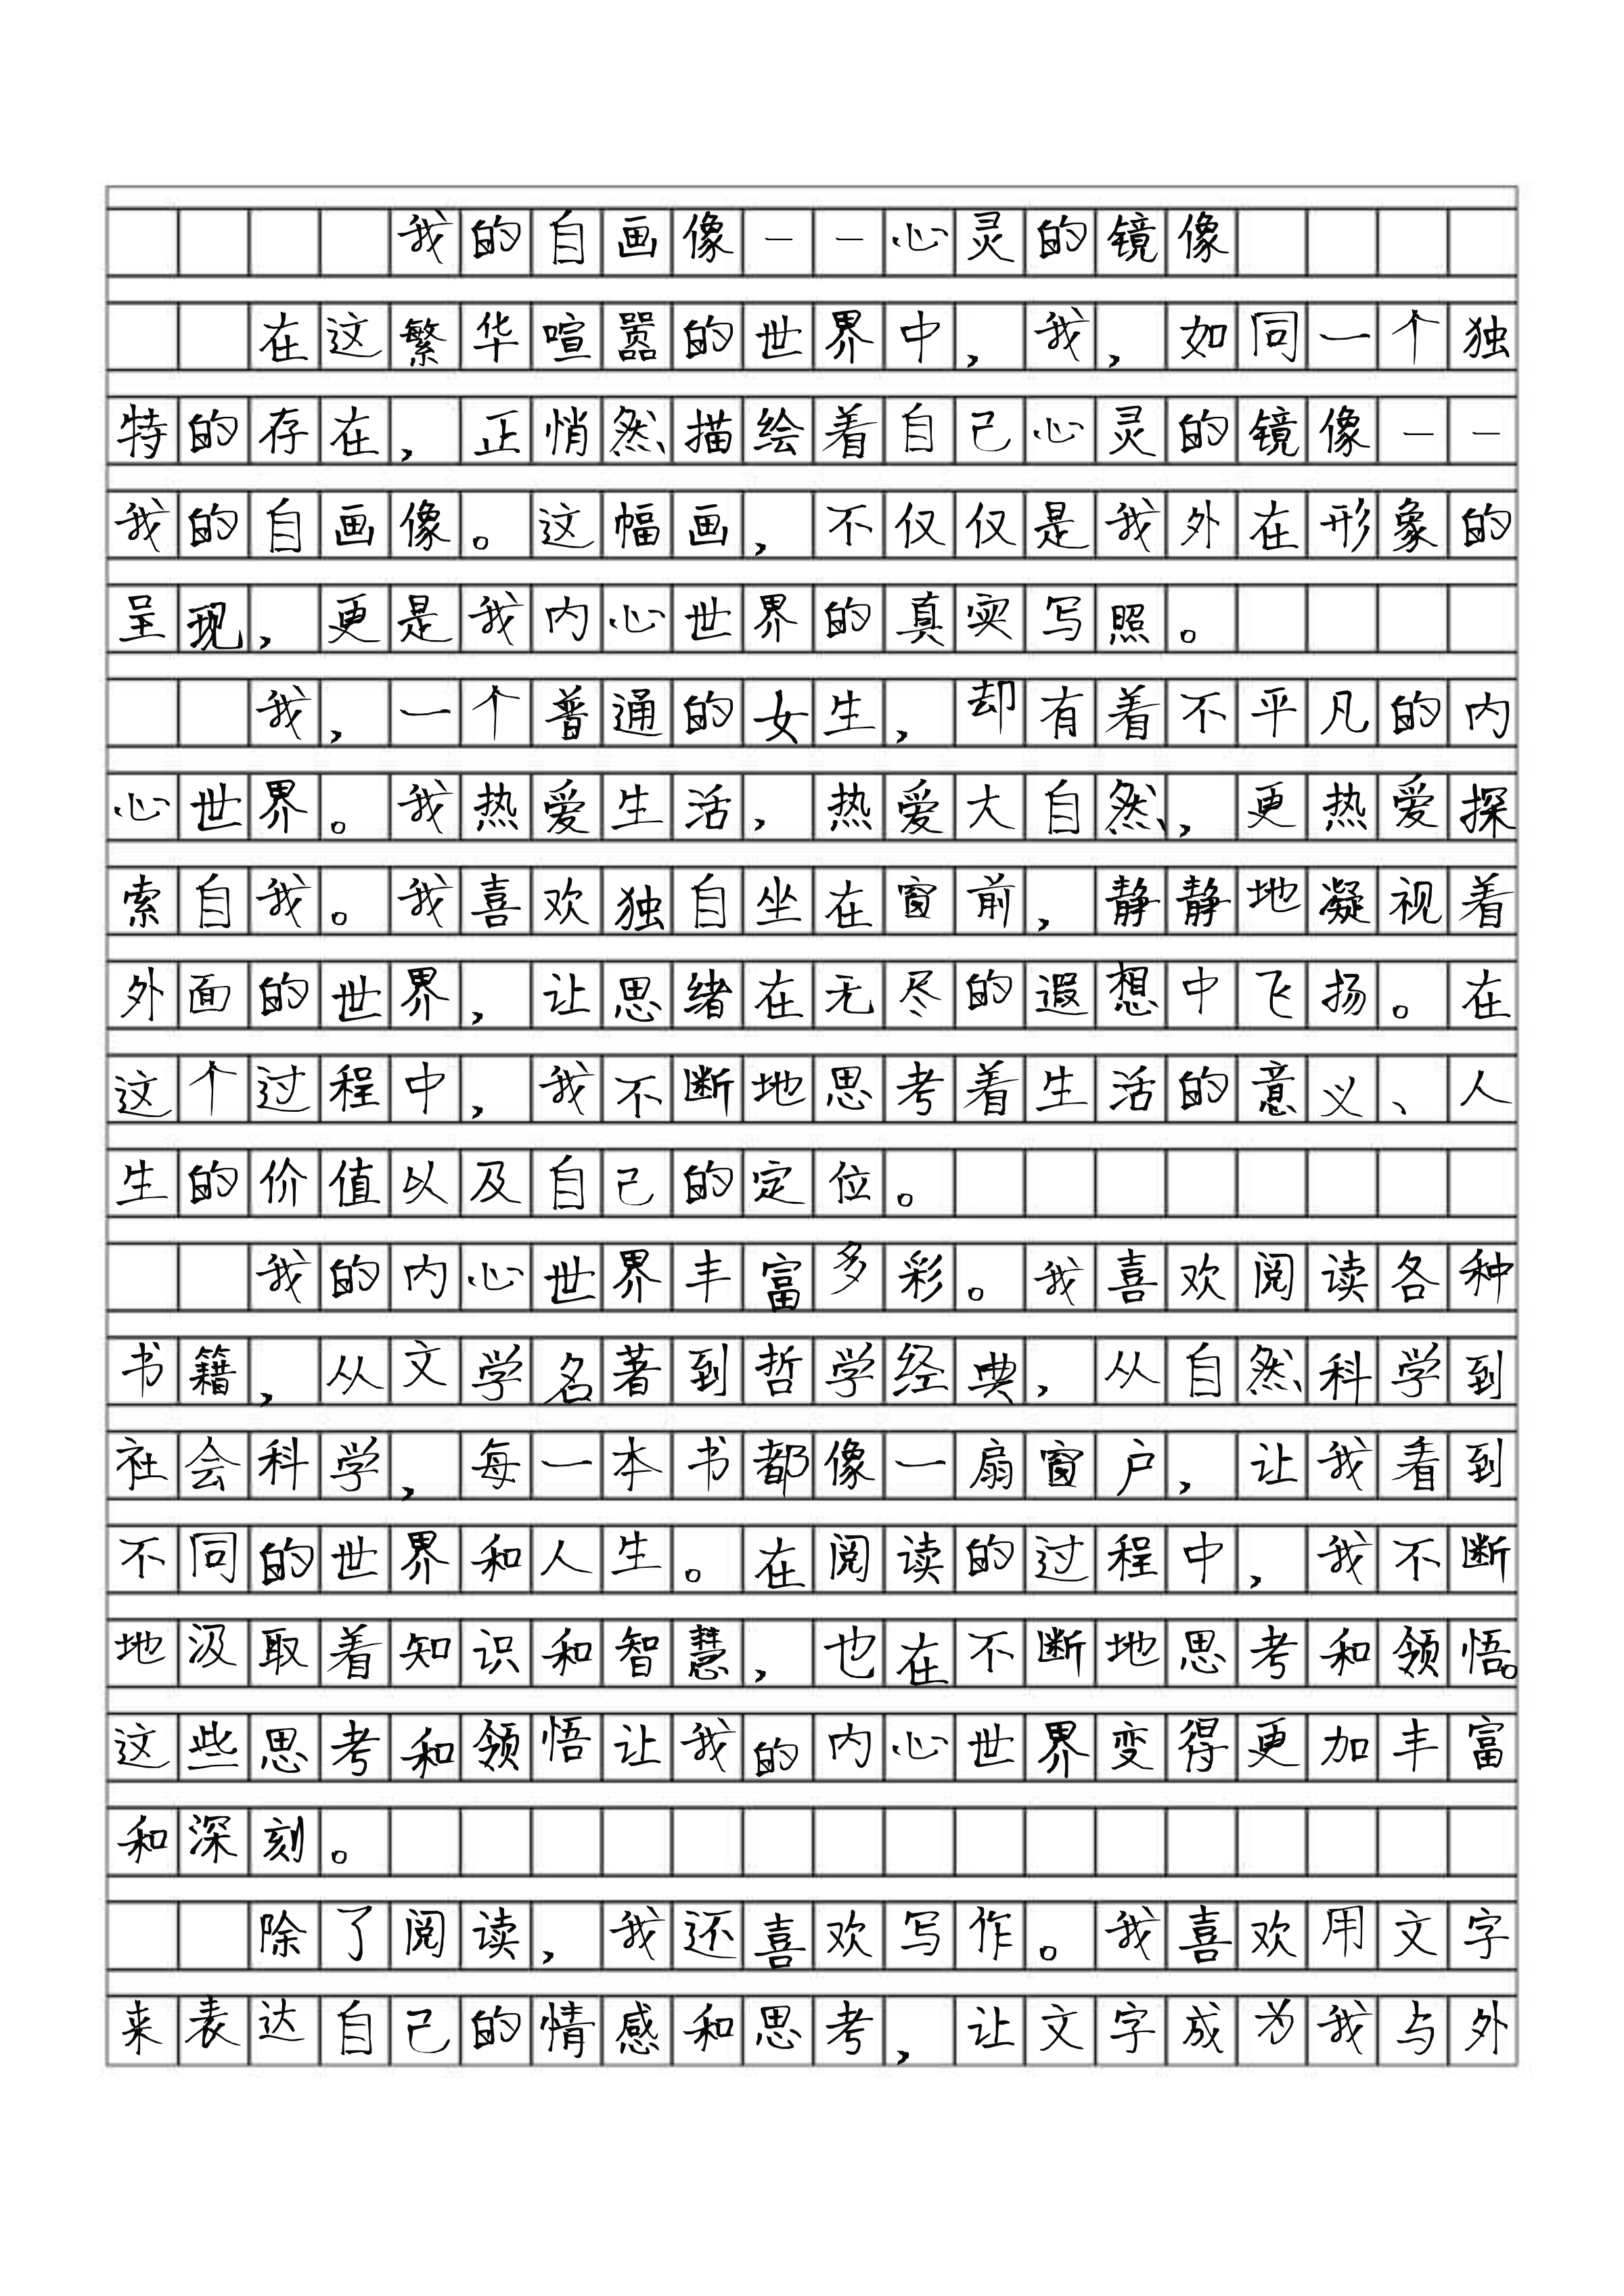 我的自画像——心灵的镜像
在这繁华喧嚣的世界中，我，如同一个独
特的存在，正悄然描绘着自己心灵的镜像——
我的自画像。这幅画，不仅仅是我外在形象的
呈现，更是我内心世界的真实写照。
我，一个普通的女生，却有着不平凡的内
心世界。我热爱生活，热爱大自然，更热爱探
索自我。我喜欢独自坐在窗前，静静地凝视着
外面的世界，让思绪在无尽的遐想中飞扬。在
这个过程中，我不断地思考着生活的意义、人
生的价值以及自己的定位。
我的内心世界丰富多彩。我喜欢阅读各种
书籍，从文学名著到哲学经典，从自然科学到
社会科学，每一本书都像一扇窗户，让我看到
不同的世界和人生。在阅读的过程中，我不断
地汲取着知识和智慧，也在不断地思考和领悟。
这些思考和领悟让我的内心世界变得更加丰富
和深刻。
除了阅读，我还喜欢写作。我喜欢用文字
来表达自己的情感和思考，让文字成为我与外